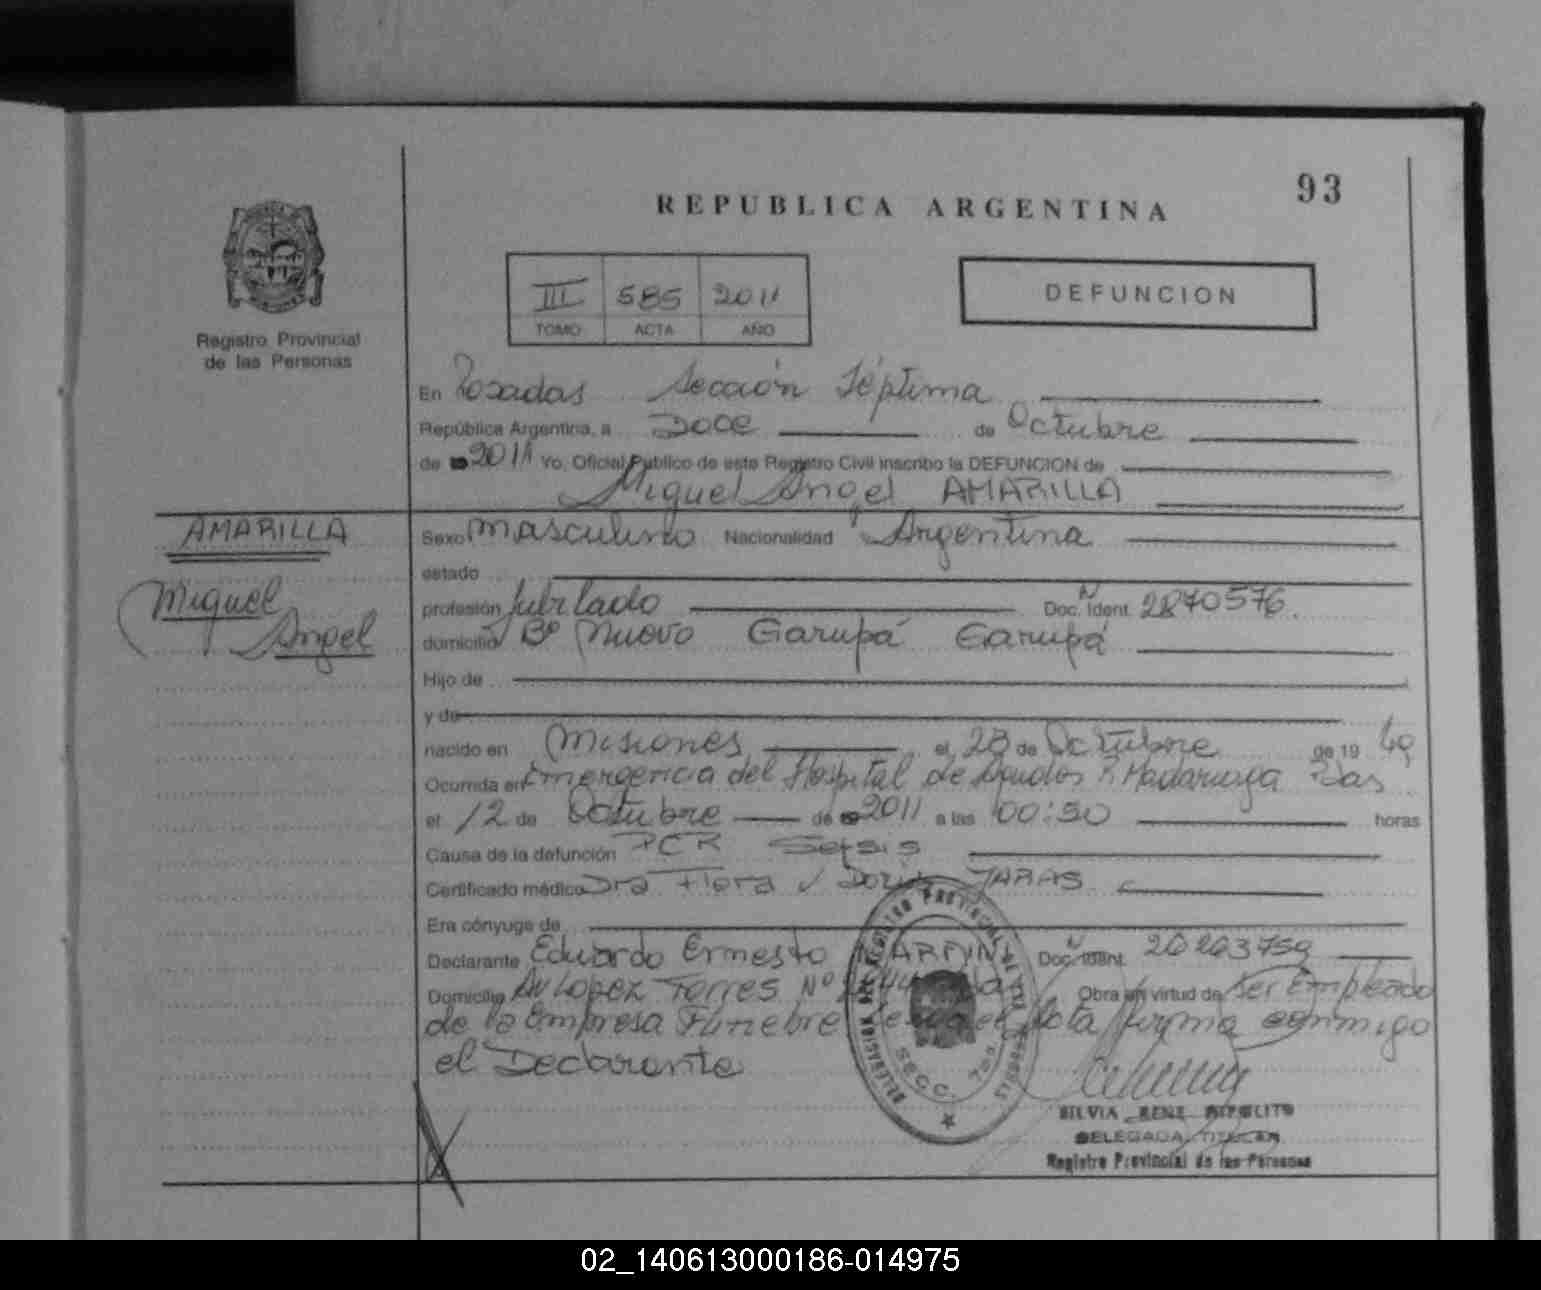 93
REPUBLICA ARGENTINA
III 585 2011
TOMO ACTA AÑO
DEFUNCION
Registro Provincial
de las Personas
En Posadas Sección Séptima
República Argentina, a Doce de Octubre
de 2011 Yo, Oficial Público de este Registro Civil inscribo la DEFUNCION de
Miguel Angel AMARILLA
AMARILLA
Miguel
Angel
Sexo Masculino Nacionalidad Argentina
estado
profesión Jubilado Doc. Ident. N 2870576.
domicilio Bº Nuevo Garupá Garupá
Hijo de
y de
nacido en Misiones el 28 de Octubre de 19
Ocurrida en Emergencia del Hospital de Agudos R Madariaga Pdas
el 12 de Octubre de 2011 a las 00:30 horas
Causa de la defunción PCR Sepsis
Certificado médico Dra Flora JARAS
Era cónyuge de
Declarante Eduardo Ernesto Doc. Ident. N 20203759
Domicilio Av Lopez Torres Nº Obra en virtud de ser Empleado
de la Empresa Funebre firma conmigo
el Declarante
DELEGACION DEL REGISTRO PROVINCIAL DE LAS PERSONAS
SECC. 7ma
SILVIA RENE HIPOLITO
DELEGADA TITULAR
Registro Provincial de las Personas
02_140613000186-014975